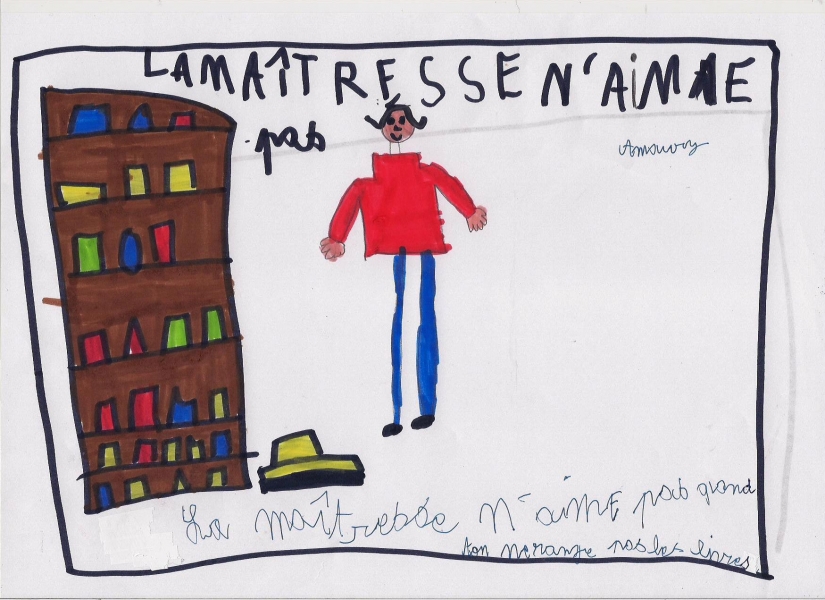 LA MAÎTRESSE N'AIME
pas
Amaury
La maîtresse n'aime pas quand
l'on ne range pas les livres.